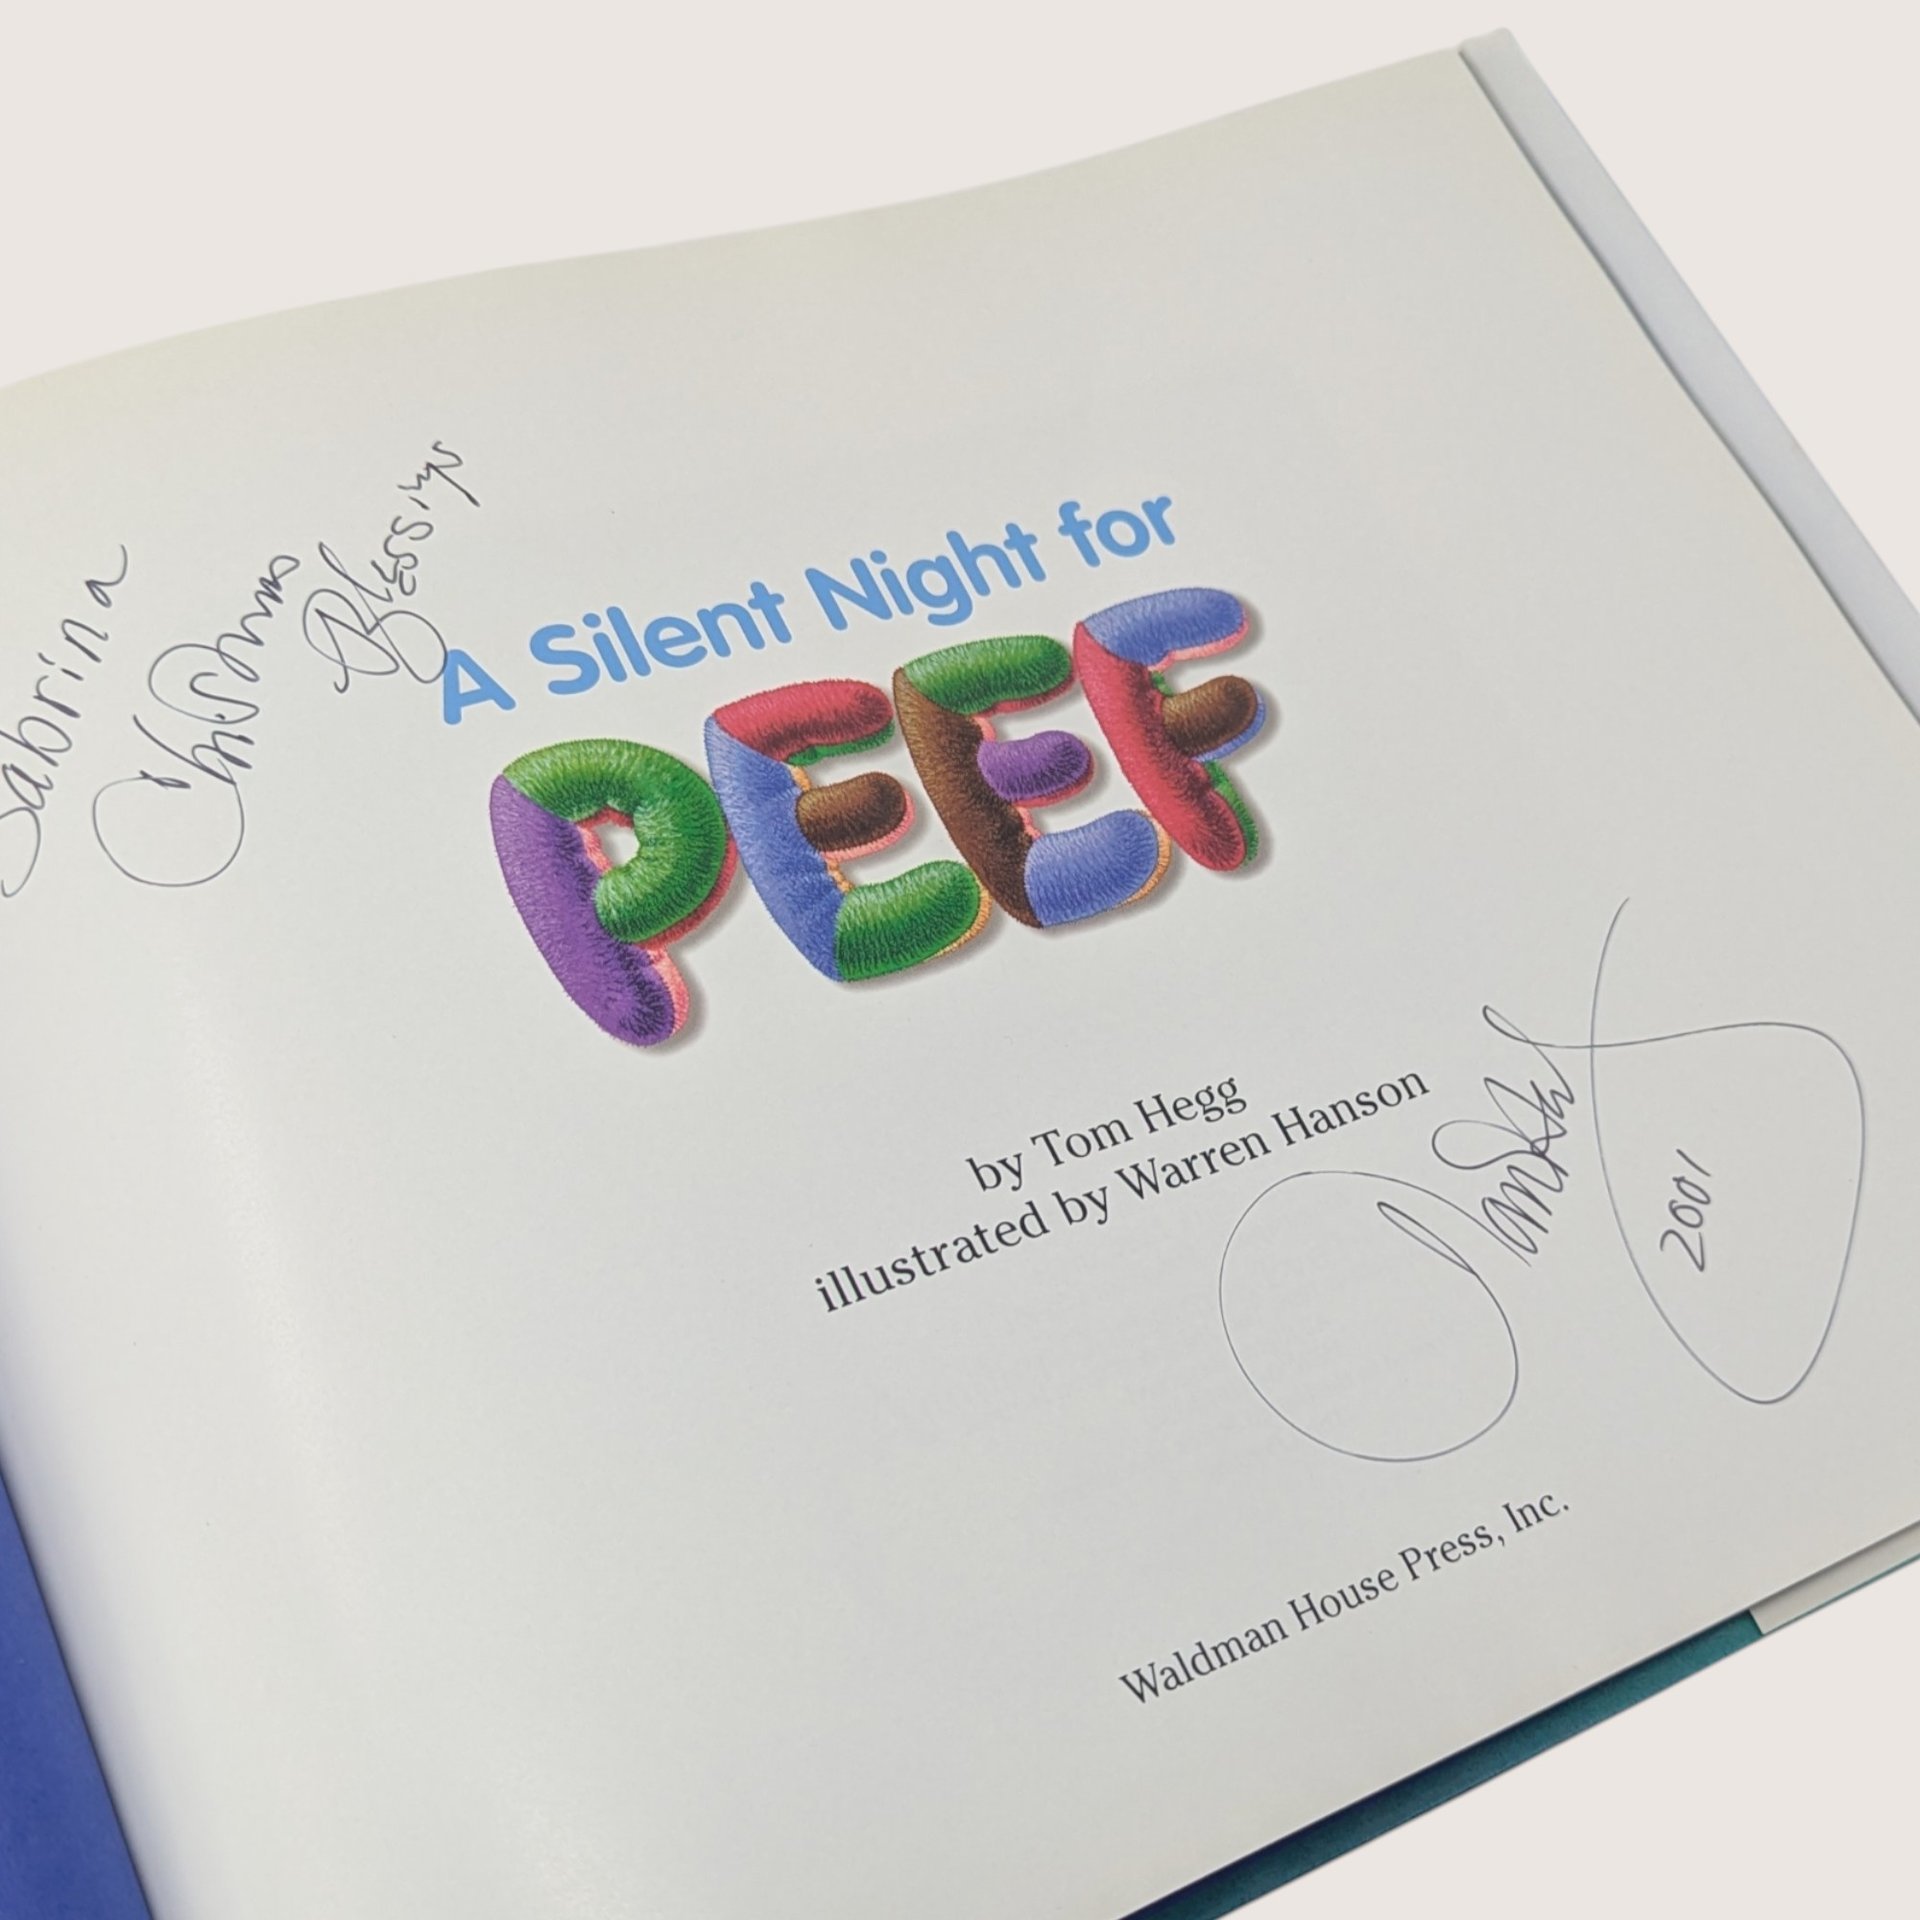 Sabrina
Christmas
Blessings
A Silent Night for
PEEF
by Tom Hegg
illustrated by Warren Hanson
2001
Waldman House Press, Inc.